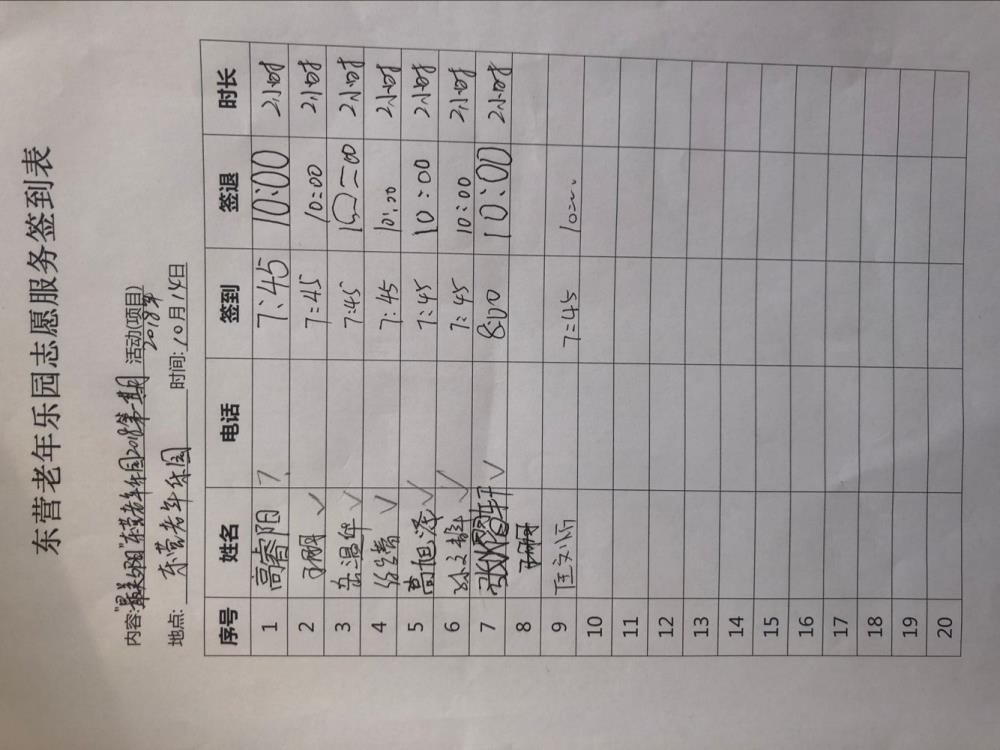 东营老年乐园志愿服务签到表
内容:"最美夕阳"东营老年乐园2018第一期 活动(项目)
2018年
地点: 东营老年乐园 时间: 10月14日
序号 姓名 电话 签到 签退 时长
1 高睿阳 7:45 10:00 2小时
2 7:45 10:00 2小时
3 7:45 10:00 2小时
4 7:45 10:00 2小时
5 高旭泽 ✓ 7:45 10:00 2小时
6 ✓ 7:45 10:00 2小时
7 ✓ 8:00 10:00 2小时
8
9 7:45
10
11
12
13
14
15
16
17
18
19
20